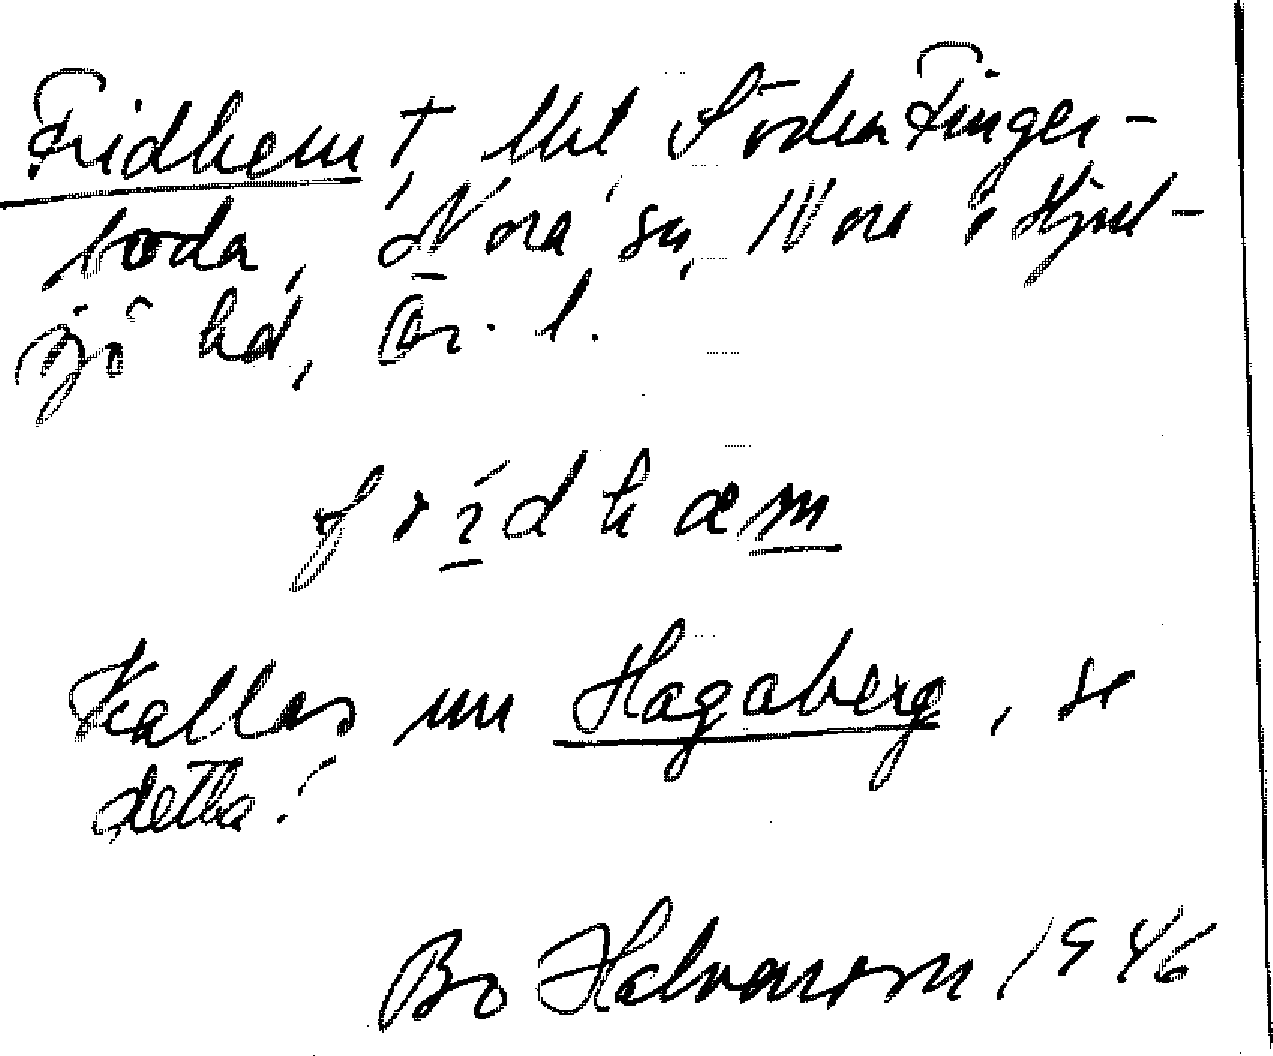 Fridhem † Uxl Södra Finger-
boda, Nora sn, Nora o Hjul-
sjö hd, Ör. l.
frídhæm
Kallas nu Hagaberg, se
detta!
Bo Halvarson 1946